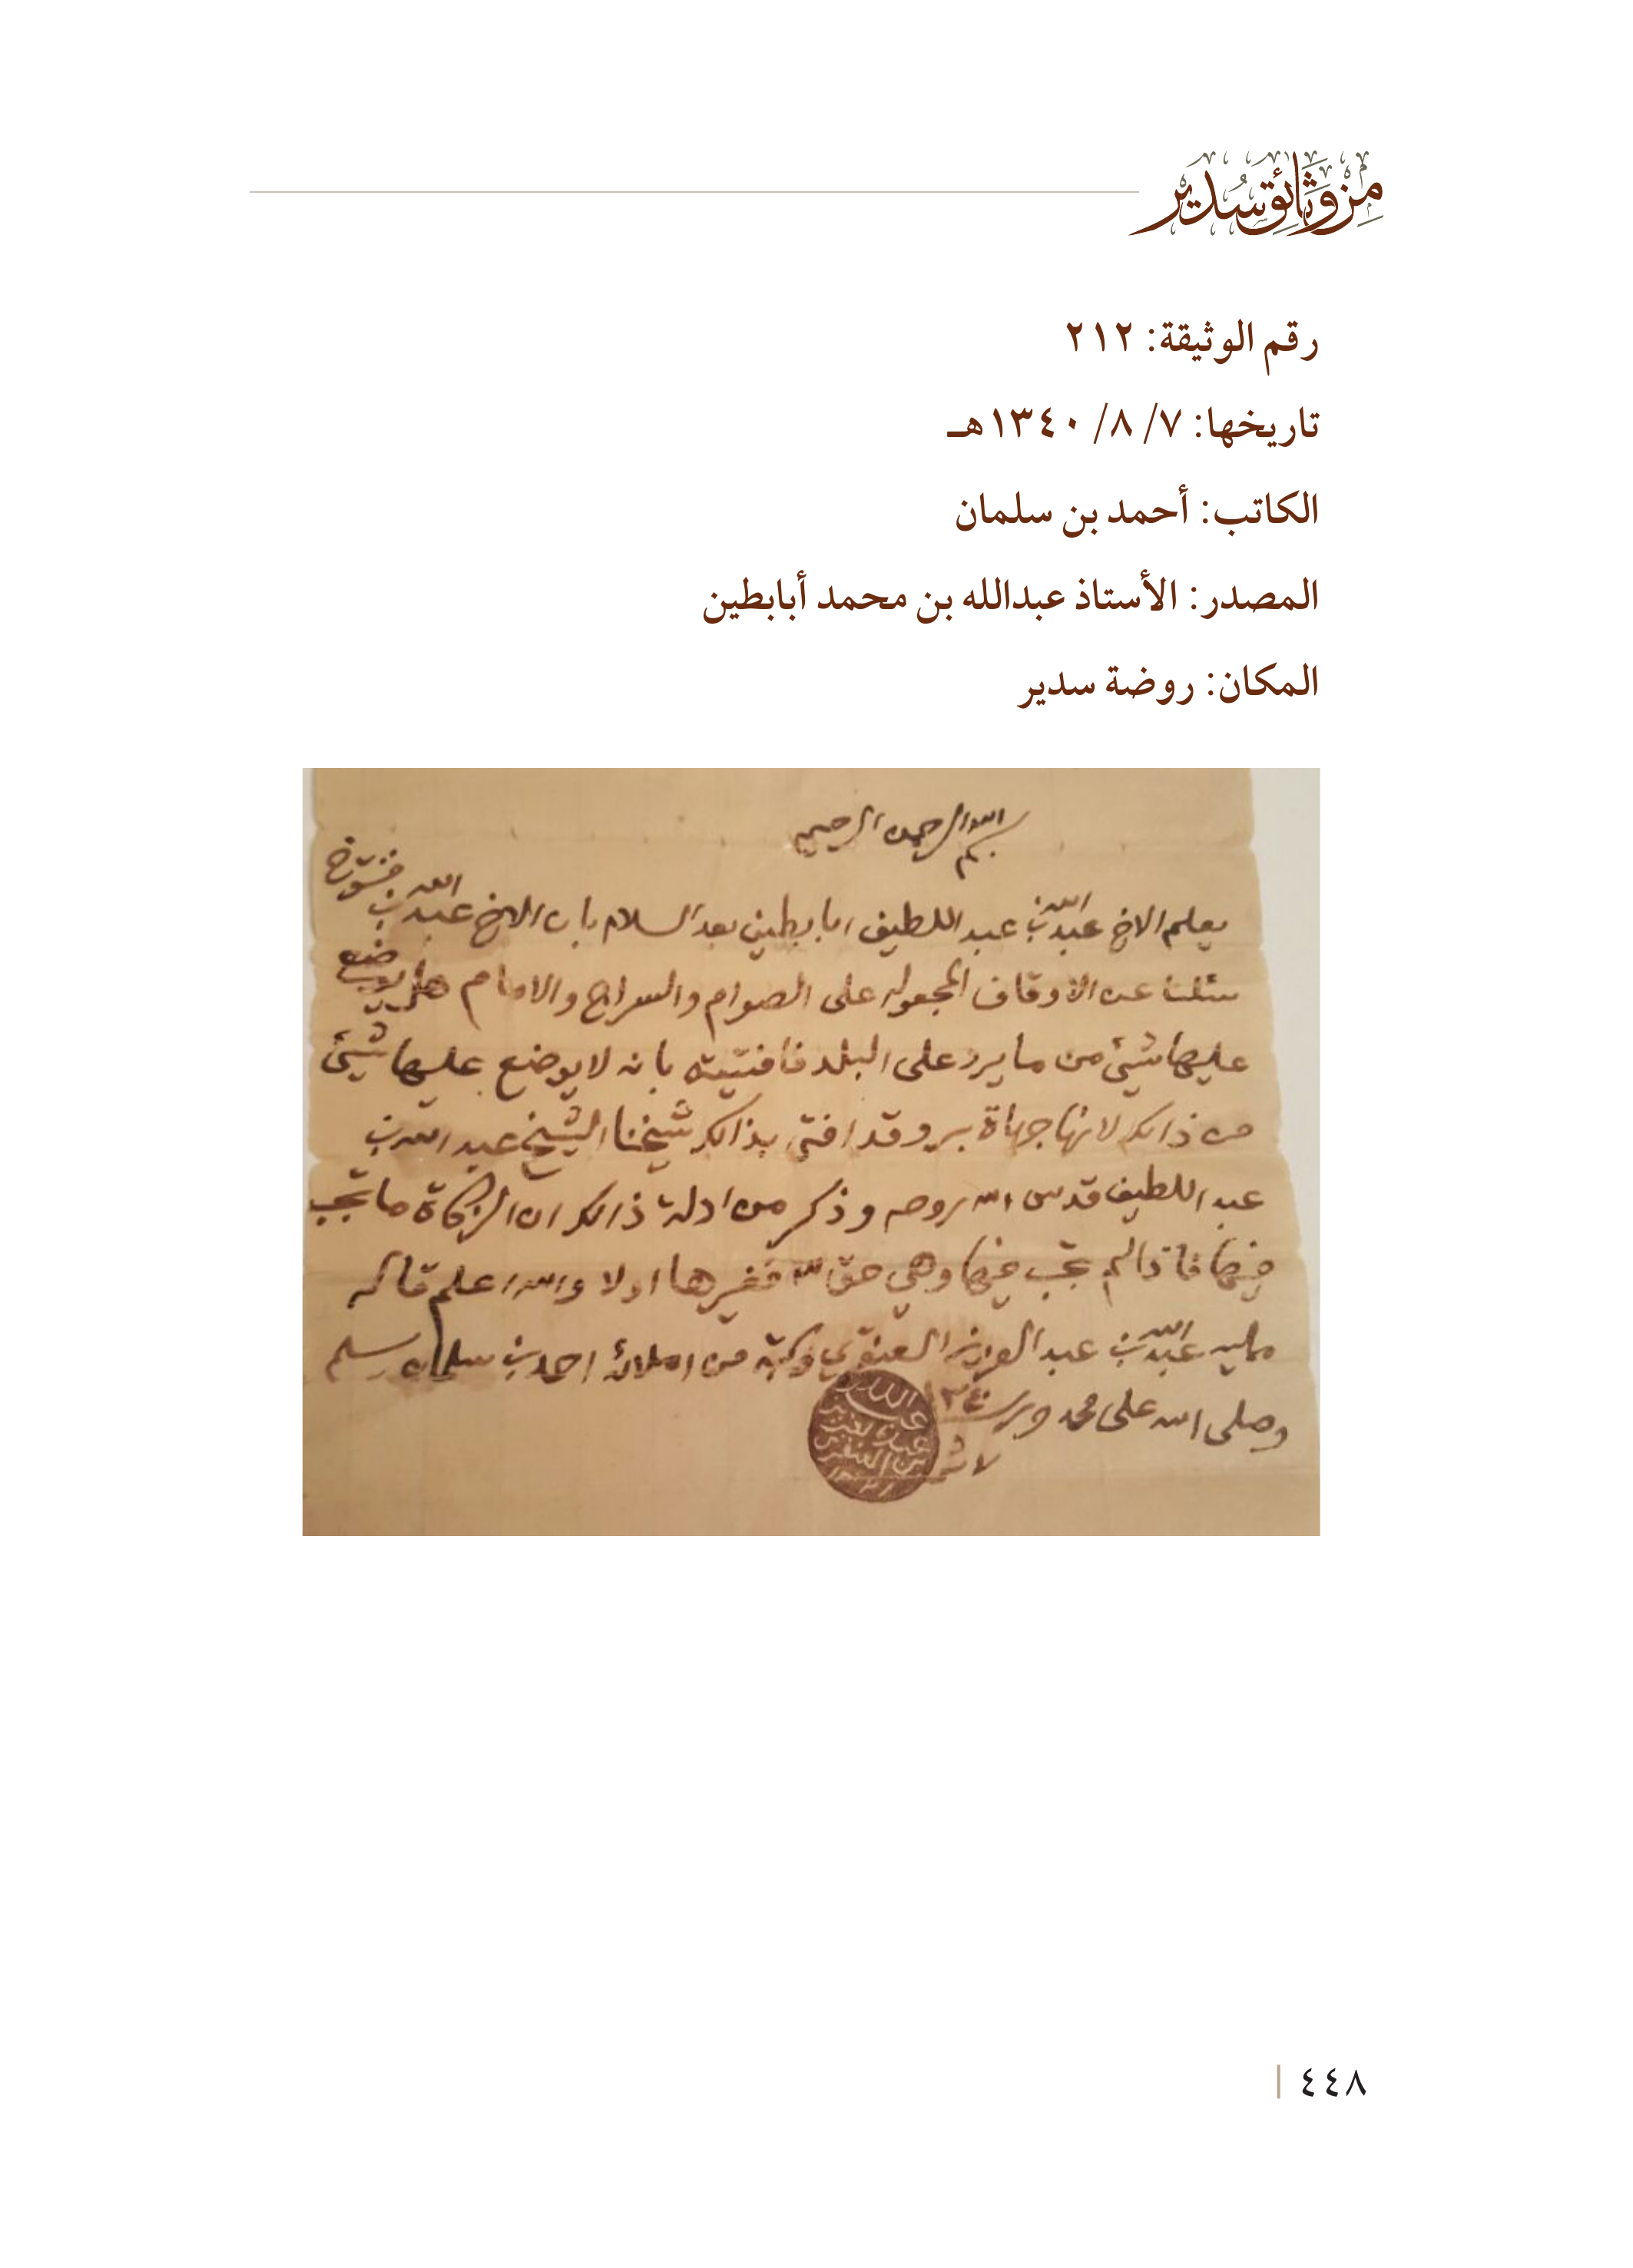 من وثائق سدير
رقم الوثيقة: ٢١٢
تاريخها: ٧/ ٨/ ١٣٤٠هـ
الكاتب: أحمد بن سلمان
المصدر: الأستاذ عبدالله بن محمد أبابطين
المكان: روضة سدير
بسم الله الرحمن الرحيم
يعلم الاخ عبد الله بن عبد اللطيف ابابطين بعد السلام بان الاخ عبد الله بن
سئلنا عن الاوقاف المجعوله على الصوام والسراج والامام هل يوضع
عليها شيئ من ما يرد على البلد فافتيته بانه لا يوضع عليها شيئ
من ذالك لانها جهاة بر وقد افتى بذالك شيخنا الشيخ عبد الله بن
عبد اللطيف قدس الله روحه وذكر من ادلة ذالك ان الزكاة ما تجب
فيها فاذا لم تجب فيها وهي حق لله فغيرها اولا والله اعلم قاله
ممليه عبد الله بن عبد العزيز العنقري وكتبه من املائه احمد بن سلمان
وصلى الله على محمد وسلم ١٣٤٠
٧ ش
٤٤٨